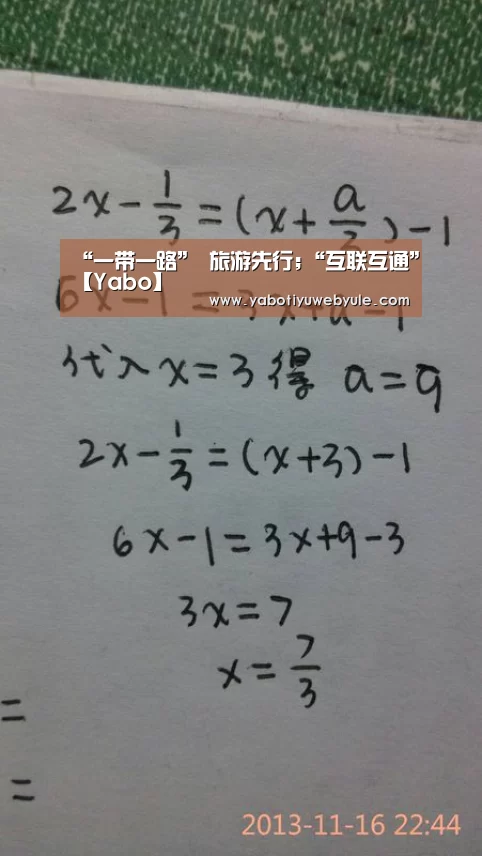 2x - 1/3 = (x + a/3) - 1
“一带一路” 旅游先行；“互联互通”
【Yabo】
www.yabotiyuwebyule.com
6x - 1 = 3x + a - 1
代入 x = 3 得 a = 9
2x - 1/3 = (x + 3) - 1
6x - 1 = 3x + 9 - 3
3x = 7
x = 7/3
=
=
2013-11-16 22:44